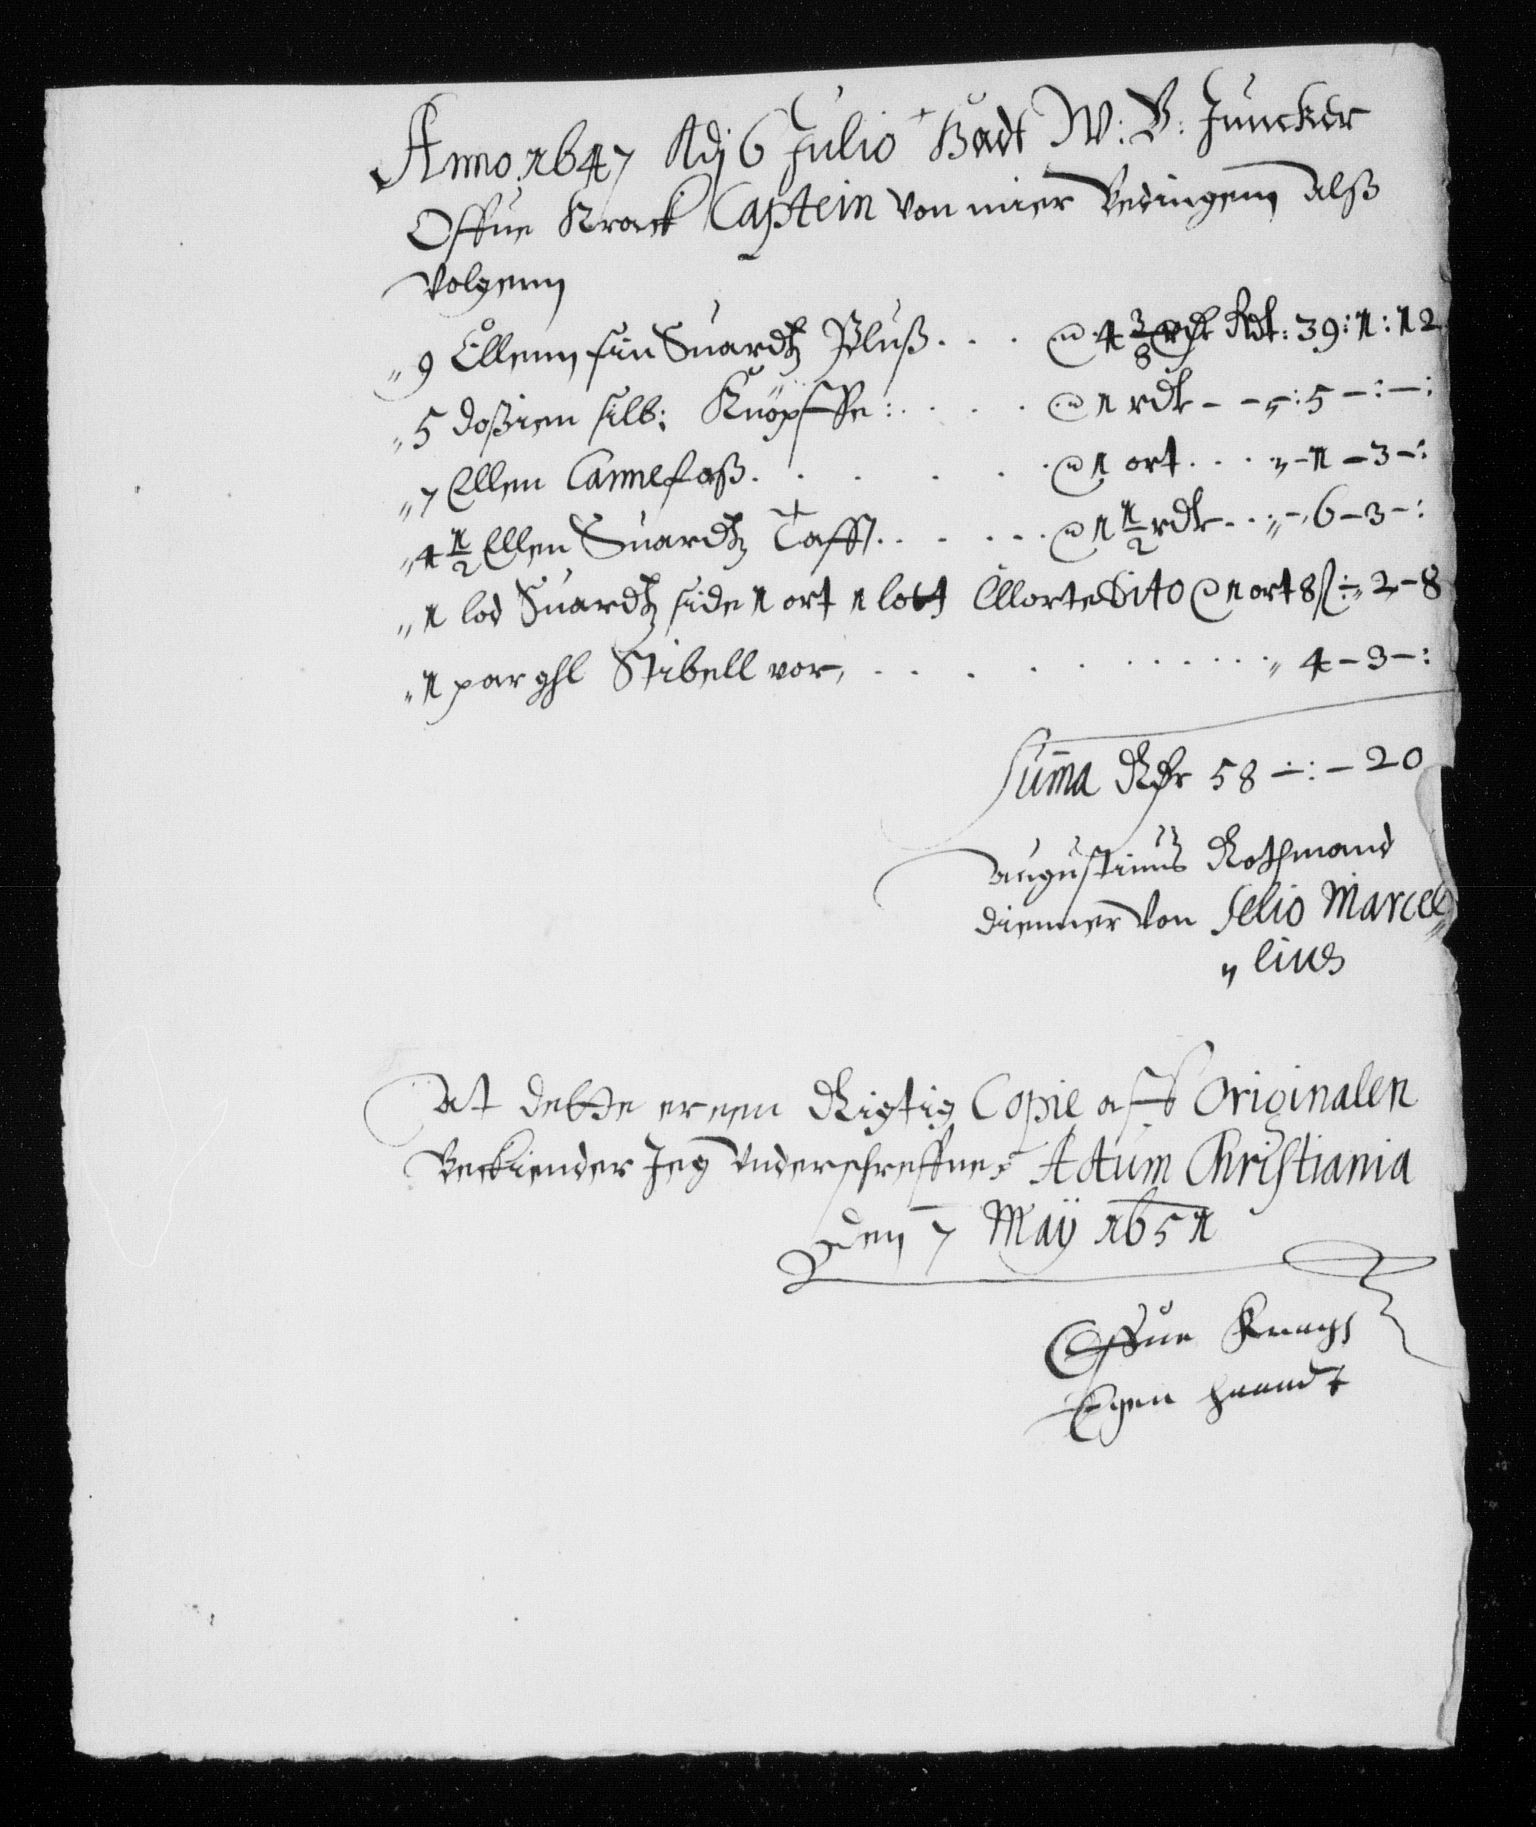 Anno 1647 Adj 6 Julio Hadt W: B: Juncker
Offue Krack Captein von mier Bedingenn alß
volgenn
" 9 Ellenn fin Suardtz Pluß . . . @ 4 3/8 Rdr Rdt: 39 : 1 : 12
" 5 doßien silb: Knöpffe : . . . . @ 1 rdr - - " : 5 - : - :
" 7 Ellen Cannefaß . . . . . . @ 1 ort . . . " - 1 - 3 - :
" 4 1/2 Ellen Suardtz Tafft . . . . . . @ 1 1/2 rdr . . " - 6 - 3 - :
" 1 lod Suardtz side 1 ort 1 lott Couleurte Dito @ 1 ort 8 ß " 2 - 8
" 1 par ghl Stibell vor, . . . . . . . . . . . " 4 - 3 - :
Suma Rdr 58 - : - 20
Augustinus Rothmand
dienner von Selio Marce
" lius
At dette er een Rigtig Copie aff Originalen
Bekiender Jeg Underschreffne Actum Christiania
Den 7 Maÿ 1651
Offue Kragh
Egen Haandt